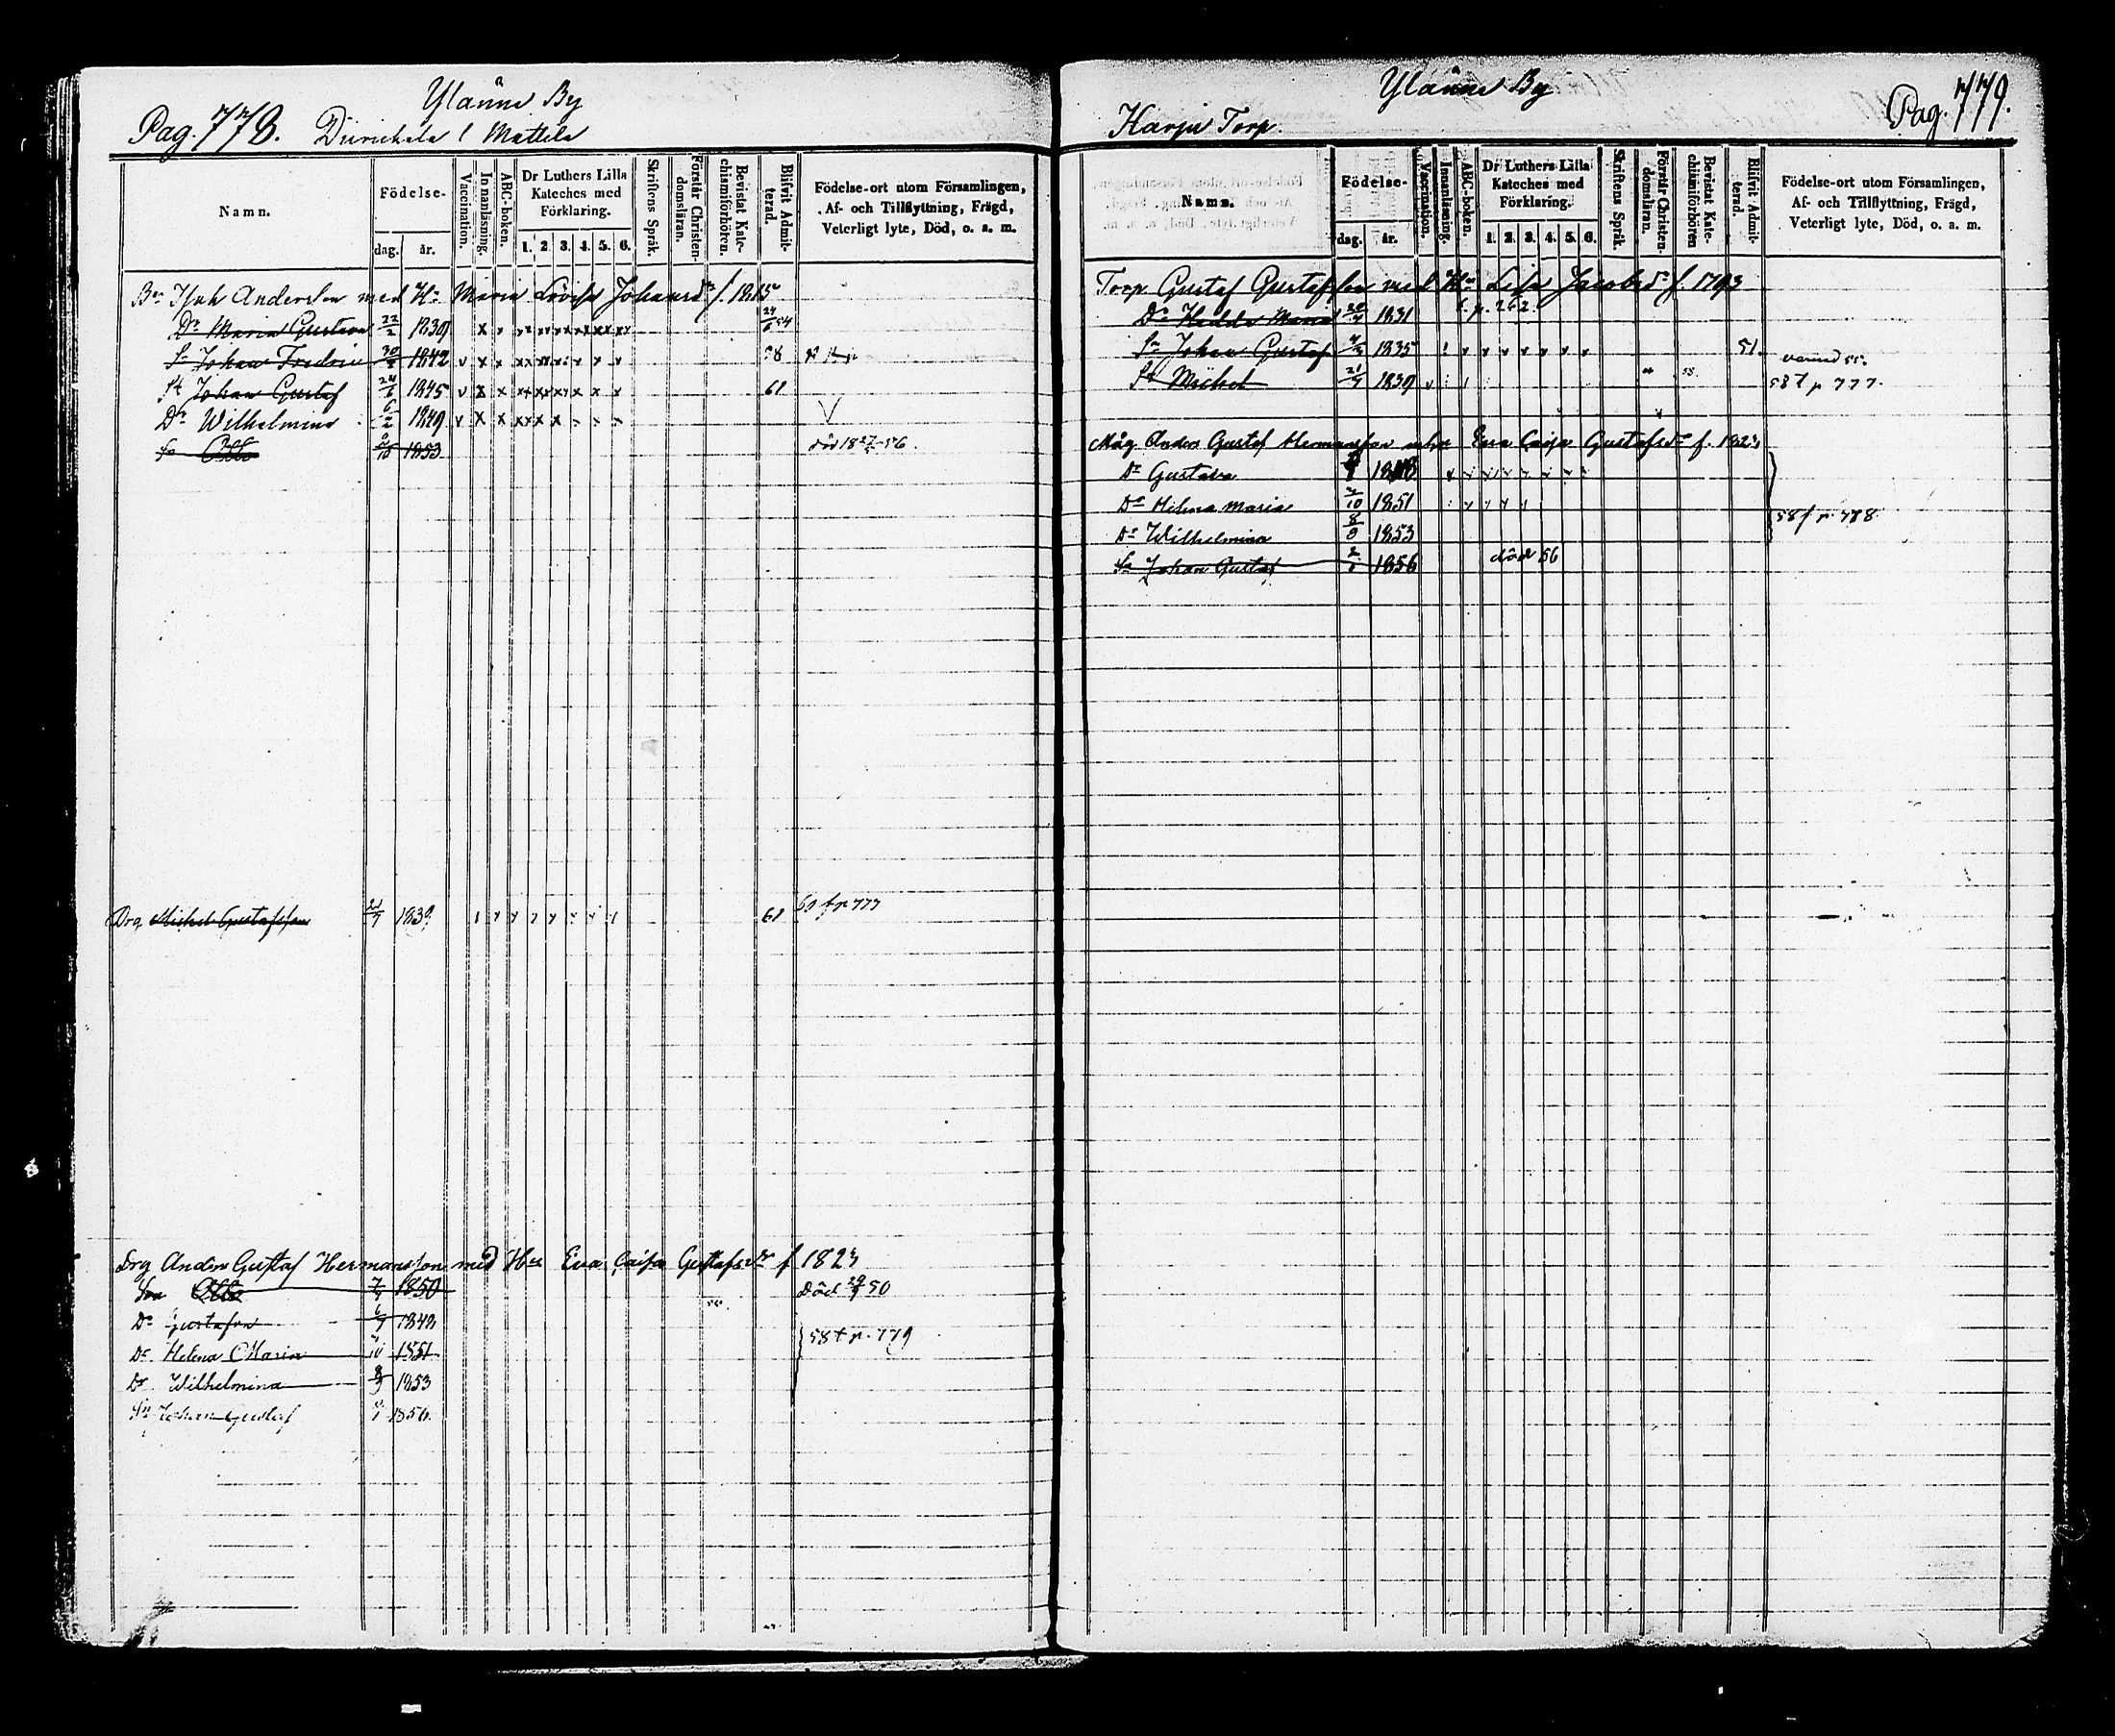 Ylänne By
Pag. 778.
Namn.
Födelse-
dag. år.
Vaccination.
Innanläsning.
ABC-boken.
Dr Luthers Lilla Kateches med Förklaring.
1. 2. 3. 4. 5. 6.
Skriftens Språk.
Förstår Christendomsläran.
Bevistat Katechismiförhören.
Blifvit Admitterad.
Födelse-ort utom Församlingen,
Af- och Tillflyttning, Frägd,
Veterligt lyte, Död, o. a. m.
Andersson med Maria Johansdr f. 1815
Dr Maria Gustava 22/2 1839 54
Sn Johan Fredric 30/ 1842 58
Sn Johan Gustaf 24/6 1845 61
Dr Wilhelmina 6/2 1849
Sn Otto /10 1853 död 18 56
Drg Michel Gustafsson 21/7 1839 61 60 fr 777
Drg Anders Gustaf Hermansson med Hu Eva Caisa Gustafsdr f 1823
Son Otto 1850 Död 29/9 50
Dr Gustafva 1848
Dr Helena Maria /10 1851 58 t p. 779
Dr Wilhelmina 8/9 1853
Sn Johan Gustaf 1856
Ylänne By
Harju Torp.
Pag. 779.
Namn.
Födelse-
dag. år.
Vaccination.
Innanläsning.
ABC-boken.
Dr Luthers Lilla Kateches med Förklaring.
1. 2. 3. 4. 5. 6.
Skriftens Språk.
Förstår Christendomsläran.
Bevistat Katechismiförhören
Blifvit Admitterad.
Födelse-ort utom Församlingen,
Af- och Tillflyttning, Frägd,
Veterligt lyte, Död, o. a. m.
Torp Gustaf Gustafsson med Hu Lisa Jacobsdr f. 1793
Dr Hedda Maria 1831 t. p. 262
Sn Johan Gustaf 1835 51.
Sn Michel 21/7 1839 58 t p 777.
Måg Anders Gustaf Hermansson Eva Caisa Gustafsdr f. 1823
Dr Gustava 1848
Dr Helena Maria /10 1851
58 f p. 778
Dr Wilhelmina 8/9 1853
Sn Johan Gustaf 1856 död 56